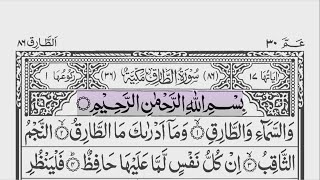 عَمّ ٣٠ اَلطَّارِق ٨٦
اٰيَاتُهَا ١٧ (٨٦) سُوْرَةُ الطَّارِقِ مَكِّيَّةٌ (٣٦) رُكُوْعُهَا ١
بِسْمِ اللّٰهِ الرَّحْمٰنِ الرَّحِيْمِ
وَالسَّمَآءِ وَالطَّارِقِ ۙ﴿١﴾ وَمَآ اَدْرٰىكَ مَا الطَّارِقُ ۙ﴿٢﴾ النَّجْمُ
الثَّاقِبُ ۙ﴿٣﴾ اِنْ كُلُّ نَفْسٍ لَّمَّا عَلَيْهَا حَافِظٌ ؕ﴿٤﴾ فَلْيَنْظُرِ